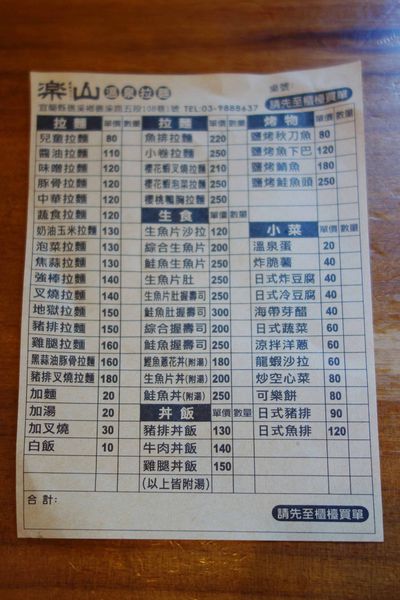 楽山 溫泉拉麵
桌號:
宜蘭縣礁溪鄉礁溪路五段108巷1號 TEL:03-9888637
請先至櫃檯買單
拉麵 單價 數量
兒童拉麵 80
醬油拉麵 110
味噌拉麵 120
豚骨拉麵 120
中華拉麵 120
蔬食拉麵 120
奶油玉米拉麵 130
泡菜拉麵 130
焦蒜拉麵 130
強棒拉麵 140
叉燒拉麵 140
地獄拉麵 150
豬排拉麵 150
雞腿拉麵 160
黑蒜油豚骨拉麵 160
豬排叉燒拉麵 180
加麵 20
加湯 20
加叉燒 30
白飯 10
拉麵 單價 數量
魚排拉麵 220
小卷拉麵 250
櫻花蝦叉燒拉麵 210
櫻花蝦泡菜拉麵 250
櫻桃鴨胸拉麵 250
生食 單價 數量
生魚片沙拉 120
綜合生魚片 200
鮭魚生魚片 250
生魚片肚 250
生魚片肚握壽司 250
鮭魚握壽司 300
綜合握壽司 200
鮭魚肚握壽司 250
鰹魚蔥花丼(附湯) 180
生魚片丼(附湯) 200
鮭魚丼(附湯) 250
丼飯 單價 數量
豬排丼飯 130
牛肉丼飯 140
雞腿丼飯 150
(以上皆附湯)
烤物 單價 數量
鹽烤秋刀魚 80
鹽烤魚下巴 120
鹽烤鯖魚 180
鹽烤鮭魚頭 250
小菜 單價 數量
溫泉蛋 20
炸脆薯 40
日式炸豆腐 40
日式冷豆腐 40
海帶芽醋 40
日式蔬菜 60
涼拌洋蔥 60
龍蝦沙拉 60
炒空心菜 80
可樂餅 80
日式豬排 90
日式魚排 120
合計:
請先至櫃檯買單